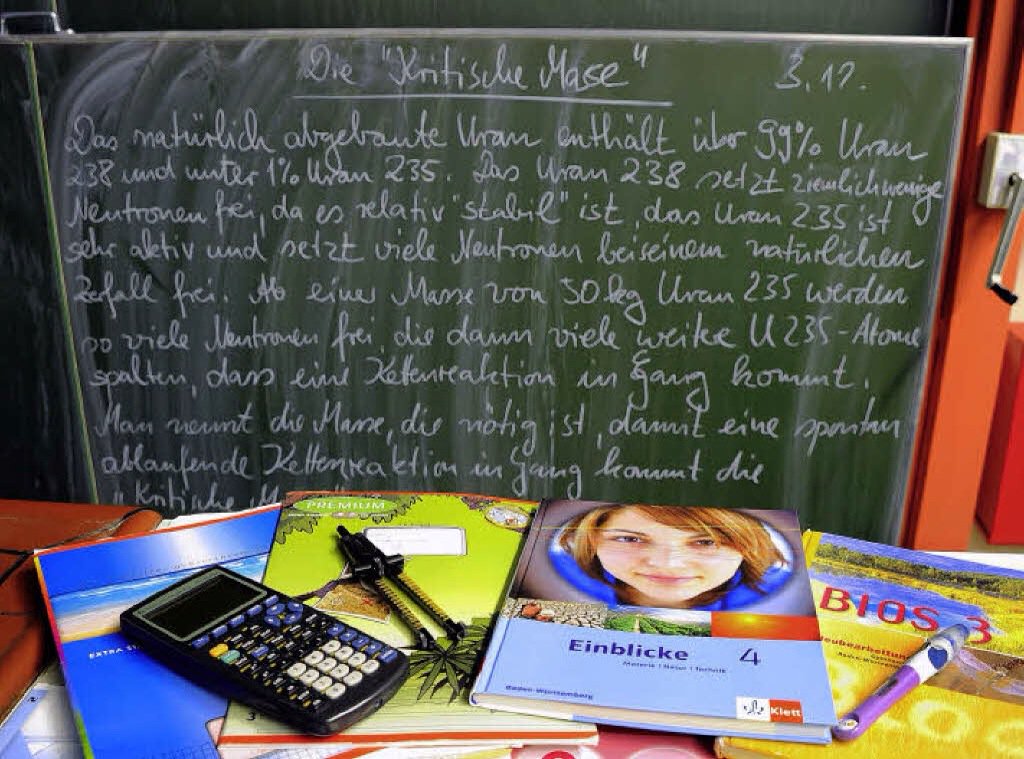 Die "Kritische Masse" 3.12.
Das natürlich abgebaute Uran enthält über 99% Uran
238 und unter 1% Uran 235. Das Uran 238 setzt ziemlich wenige
Neutronen frei, da es relativ "stabil" ist, das Uran 235 ist
sehr aktiv und setzt viele Neutronen bei seinem natürlichen
Zerfall frei. Ab einer Masse von 50 kg Uran 235 werden
so viele Neutronen frei, die dann viele weitere U 235-Atome
spalten, dass eine Kettenreaktion in Gang kommt.
Man nennt die Masse, die nötig ist, damit eine spontan
ablaufende Kettenreaktion in Gang kommt die
"Kritische
PREMIUM
EXTRA
3
Einblicke 4
Materie | Natur | Technik
Baden-Württemberg
Klett
BIOS 3
Neubearbeitung